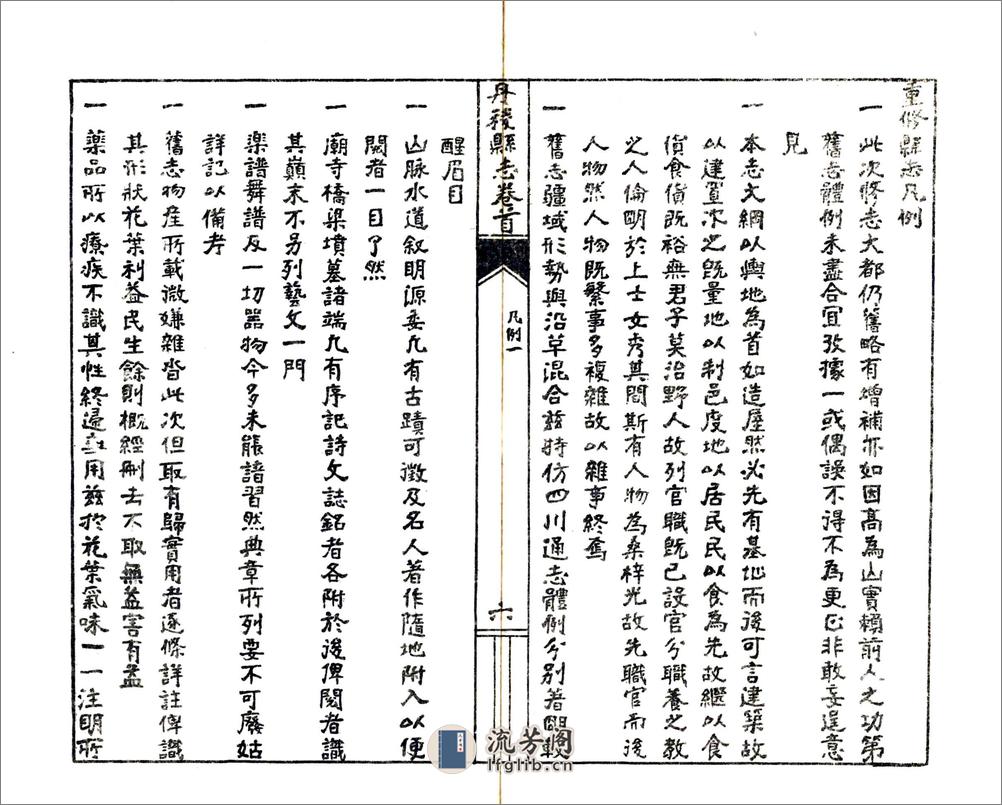 重修縣志凡例
一 此次修志大都仍舊略有增補亦如因高為山實賴前人之功第
舊志體例未盡合宜攷據一或偶誤不得不為更正非敢妄逞意
見
一 本志文綱以輿地為首如造屋然必先有基址而後可言建築故
以建置次之既量地以制邑度地以居民民以食為先故繼以食
貨食貨既裕無君子莫治野人故列官職既已設官分職養之教
之人倫明於上士女秀其間斯有人物為桑梓光故先職官而後
人物然人物既繁事多複雜故以雜事終焉
一 舊志疆域形勢與沿革混合茲特仿四川通志體例分別著明較
丹稜縣志卷首
凡例一
六
醒眉目
一 山脉水道叙明源委凡有古蹟可徵及名人著作隨地附入以便
閱者一目了然
一 廟寺橋梁墳墓諸端凡有序記詩文誌銘者各附於後俾閱者識
其巔末不另列藝文一門
一 樂譜舞譜及一切器物今多未能諳習然典章所列要不可廢姑
詳記以備考
一 舊志物產所載微嫌雜沓此次但取有歸實用者逐條詳註俾識
其形狀花葉利益民生餘則概經刪去不取無益害有益
一 藥品所以療疾不識其性終邊用茲於花葉氣味一一注明所
流芳阁
lfglib.cn